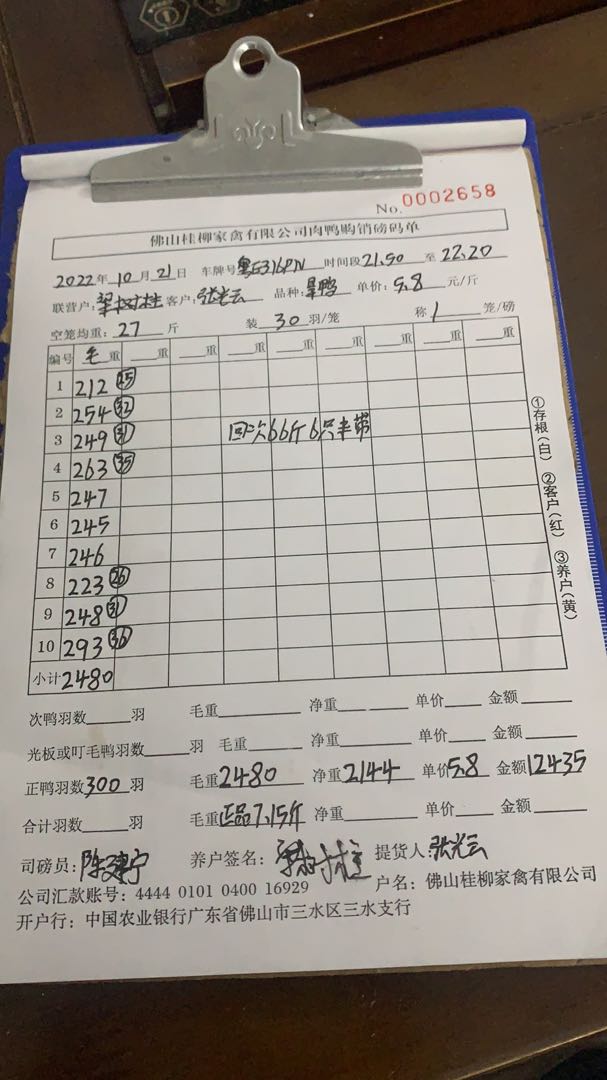 No. 0002658
佛山桂柳家禽有限公司肉鸭购销磅码单
2022年10月21日 车牌号粤E316PN 时间段21.50至22.20
联营户: 客户:张光云 品种: 鸭 单价:5.8元/斤
空笼均重:27斤 装30羽/笼 称1笼/磅
编号 毛重 重 重 重 重 重 重 重
1 212 25
2 254 32
3 249 31 回次66斤6只半带
4 263 35
5 247
6 245
7 246
8 223 26
9 248 31
10 293 36
小计 2480
①存根(白) ②客户(红) ③养户(黄)
次鸭羽数 羽 毛重 净重 单价 金额
光板或叮毛鸭羽数 羽 毛重 净重 单价 金额
正鸭羽数300羽 毛重2480 净重2144 单价5.8 金额12435
合计羽数 羽 毛重正品7.15斤 净重 单价 金额
司磅员: 养户签名: 提货人:张光云
公司汇款账号:4444 0101 0400 16929 户名:佛山桂柳家禽有限公司
开户行:中国农业银行广东省佛山市三水区三水支行